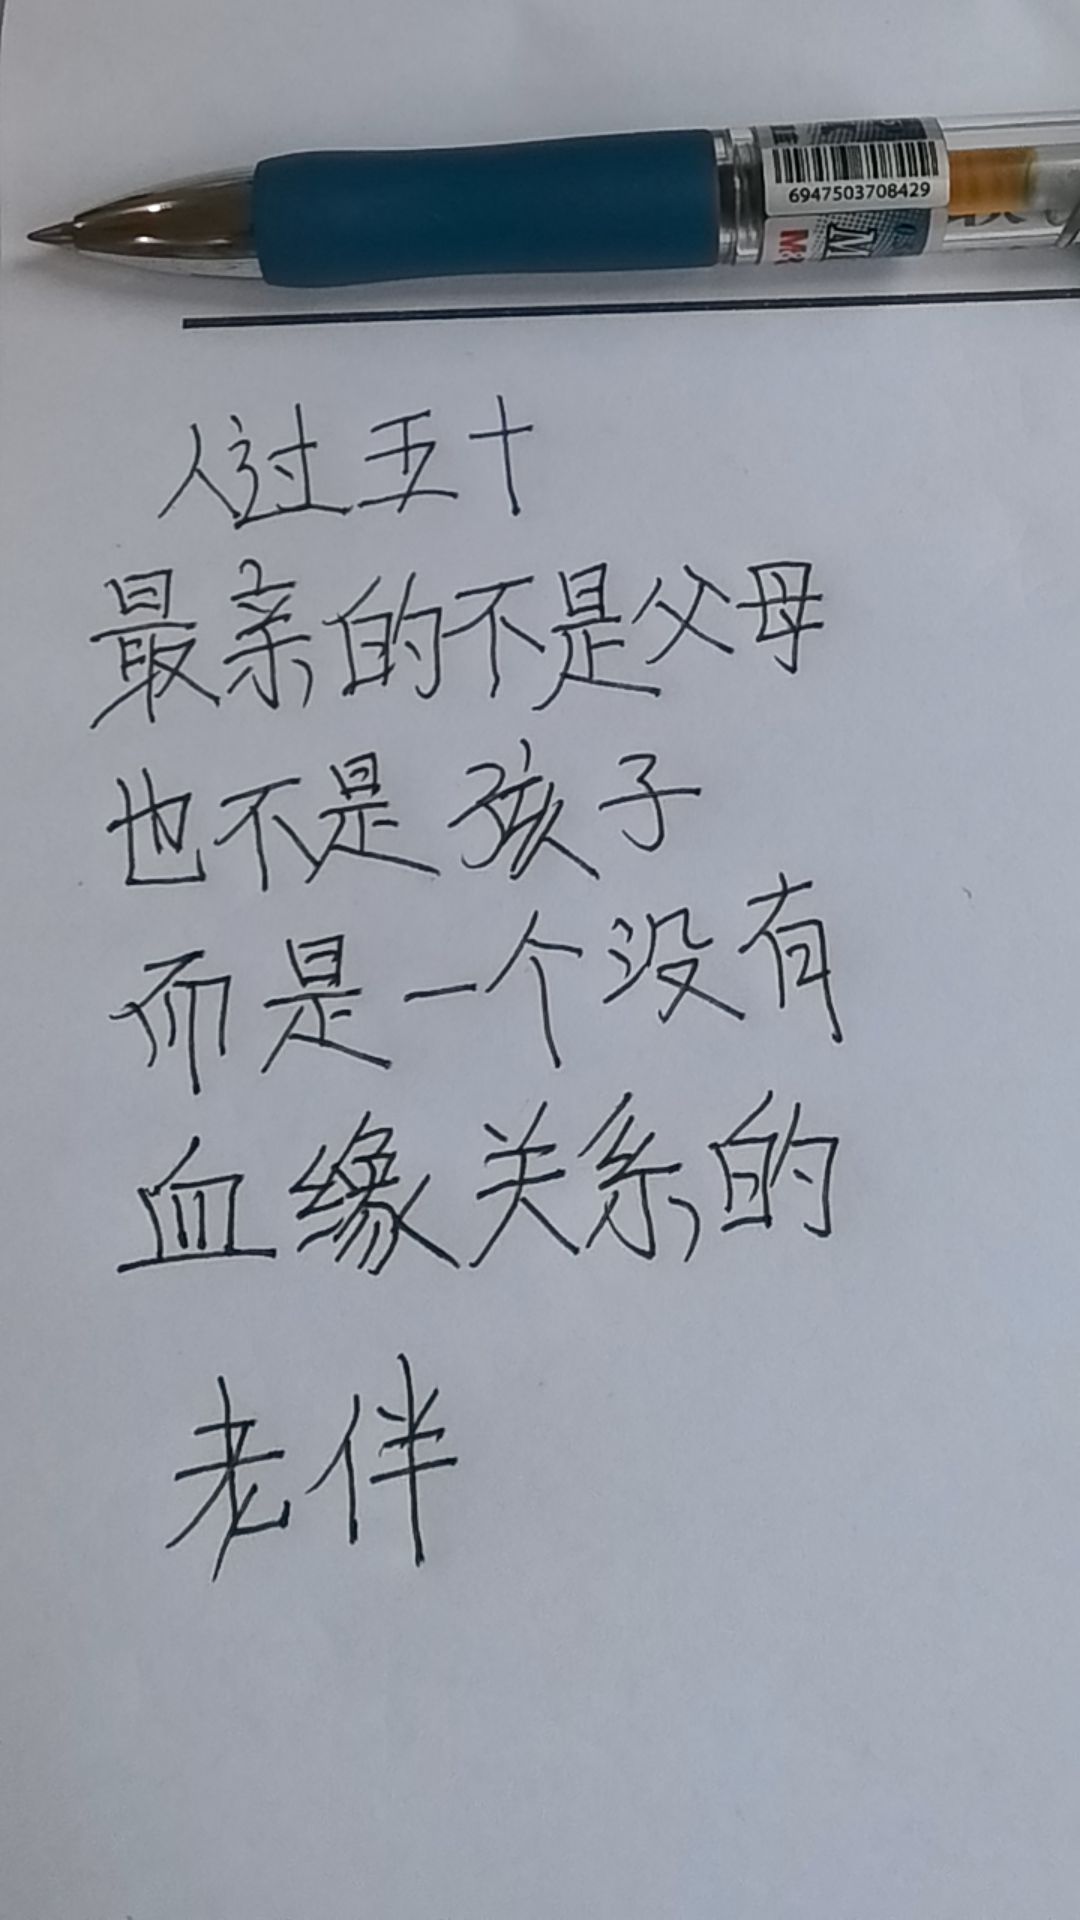 6947503708429
人过五十
最亲的不是父母
也不是孩子
而是一个没有
血缘关系的
老伴